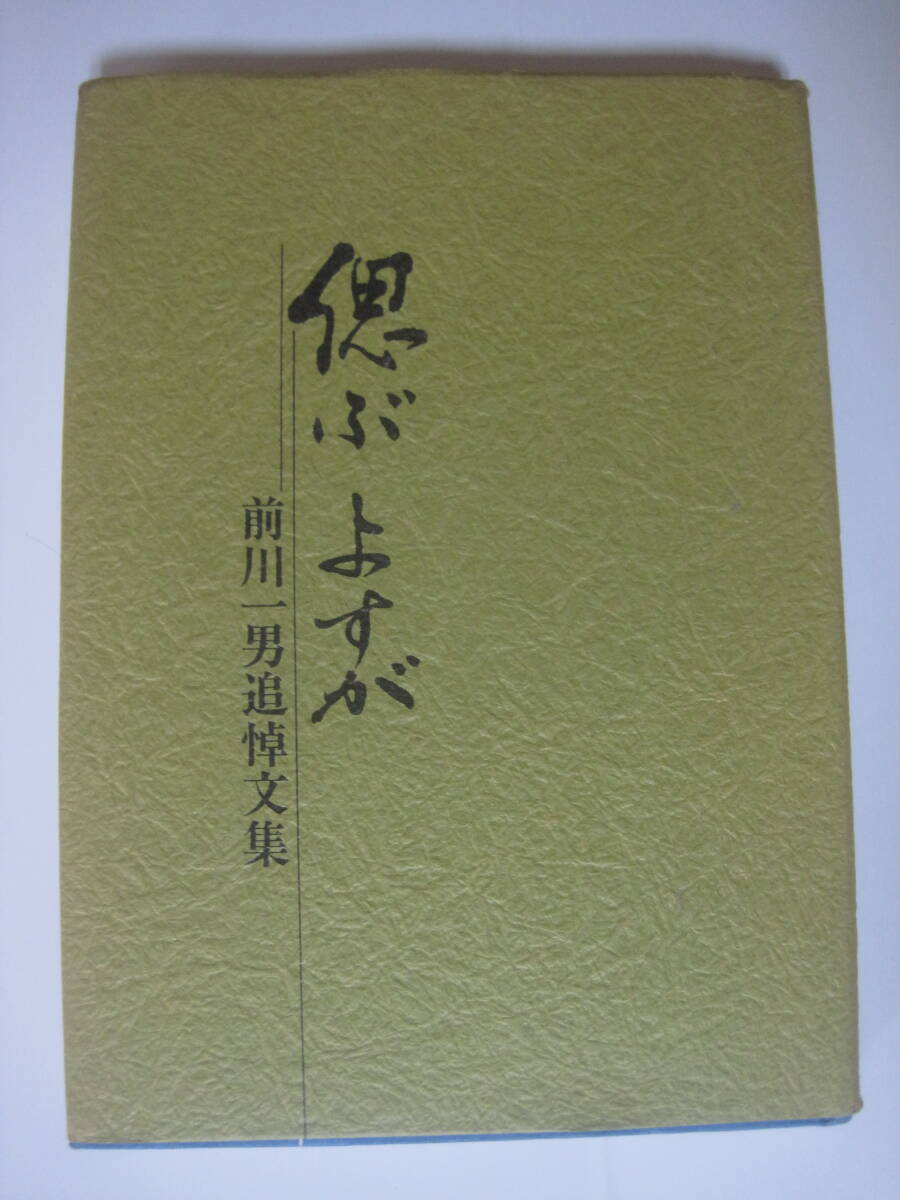 偲ぶ よすが
前川一男追悼文集